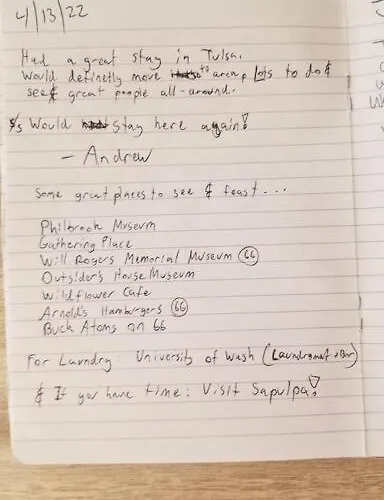 4/13/22
Had a great stay in Tulsa.
Would definetly move to area. Lots to do &
see & great people all-around.
5/5 Would stay here again!
- Andrew
Some great places to see & feast...
Philbrook Museum
Gathering Place
Will Rogers Memorial Museum 66
Outsiders House Museum
Wildflower Cafe
Arnold's Hamburgers 66
Buck Atoms on 66
For Laundry: University of Wash (Laundromat + Bar)
& If you have time: Visit Sapulpa!